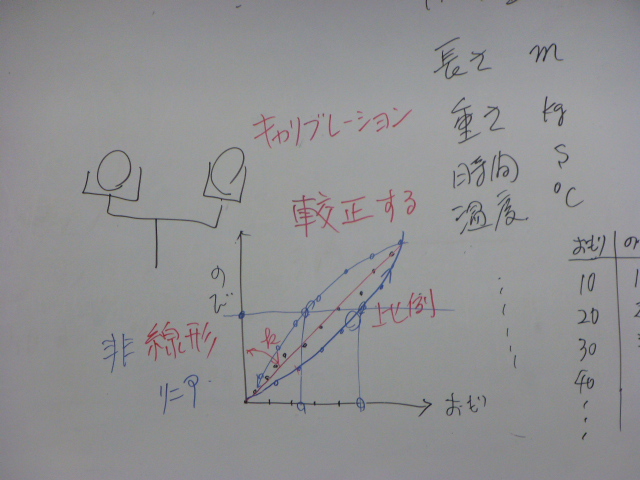 長さ m
重さ kg
時間 S
温度 ℃
キャリブレーション
較正する
のび
比例
非線形
k
おもり
おもり
10
20
30
40